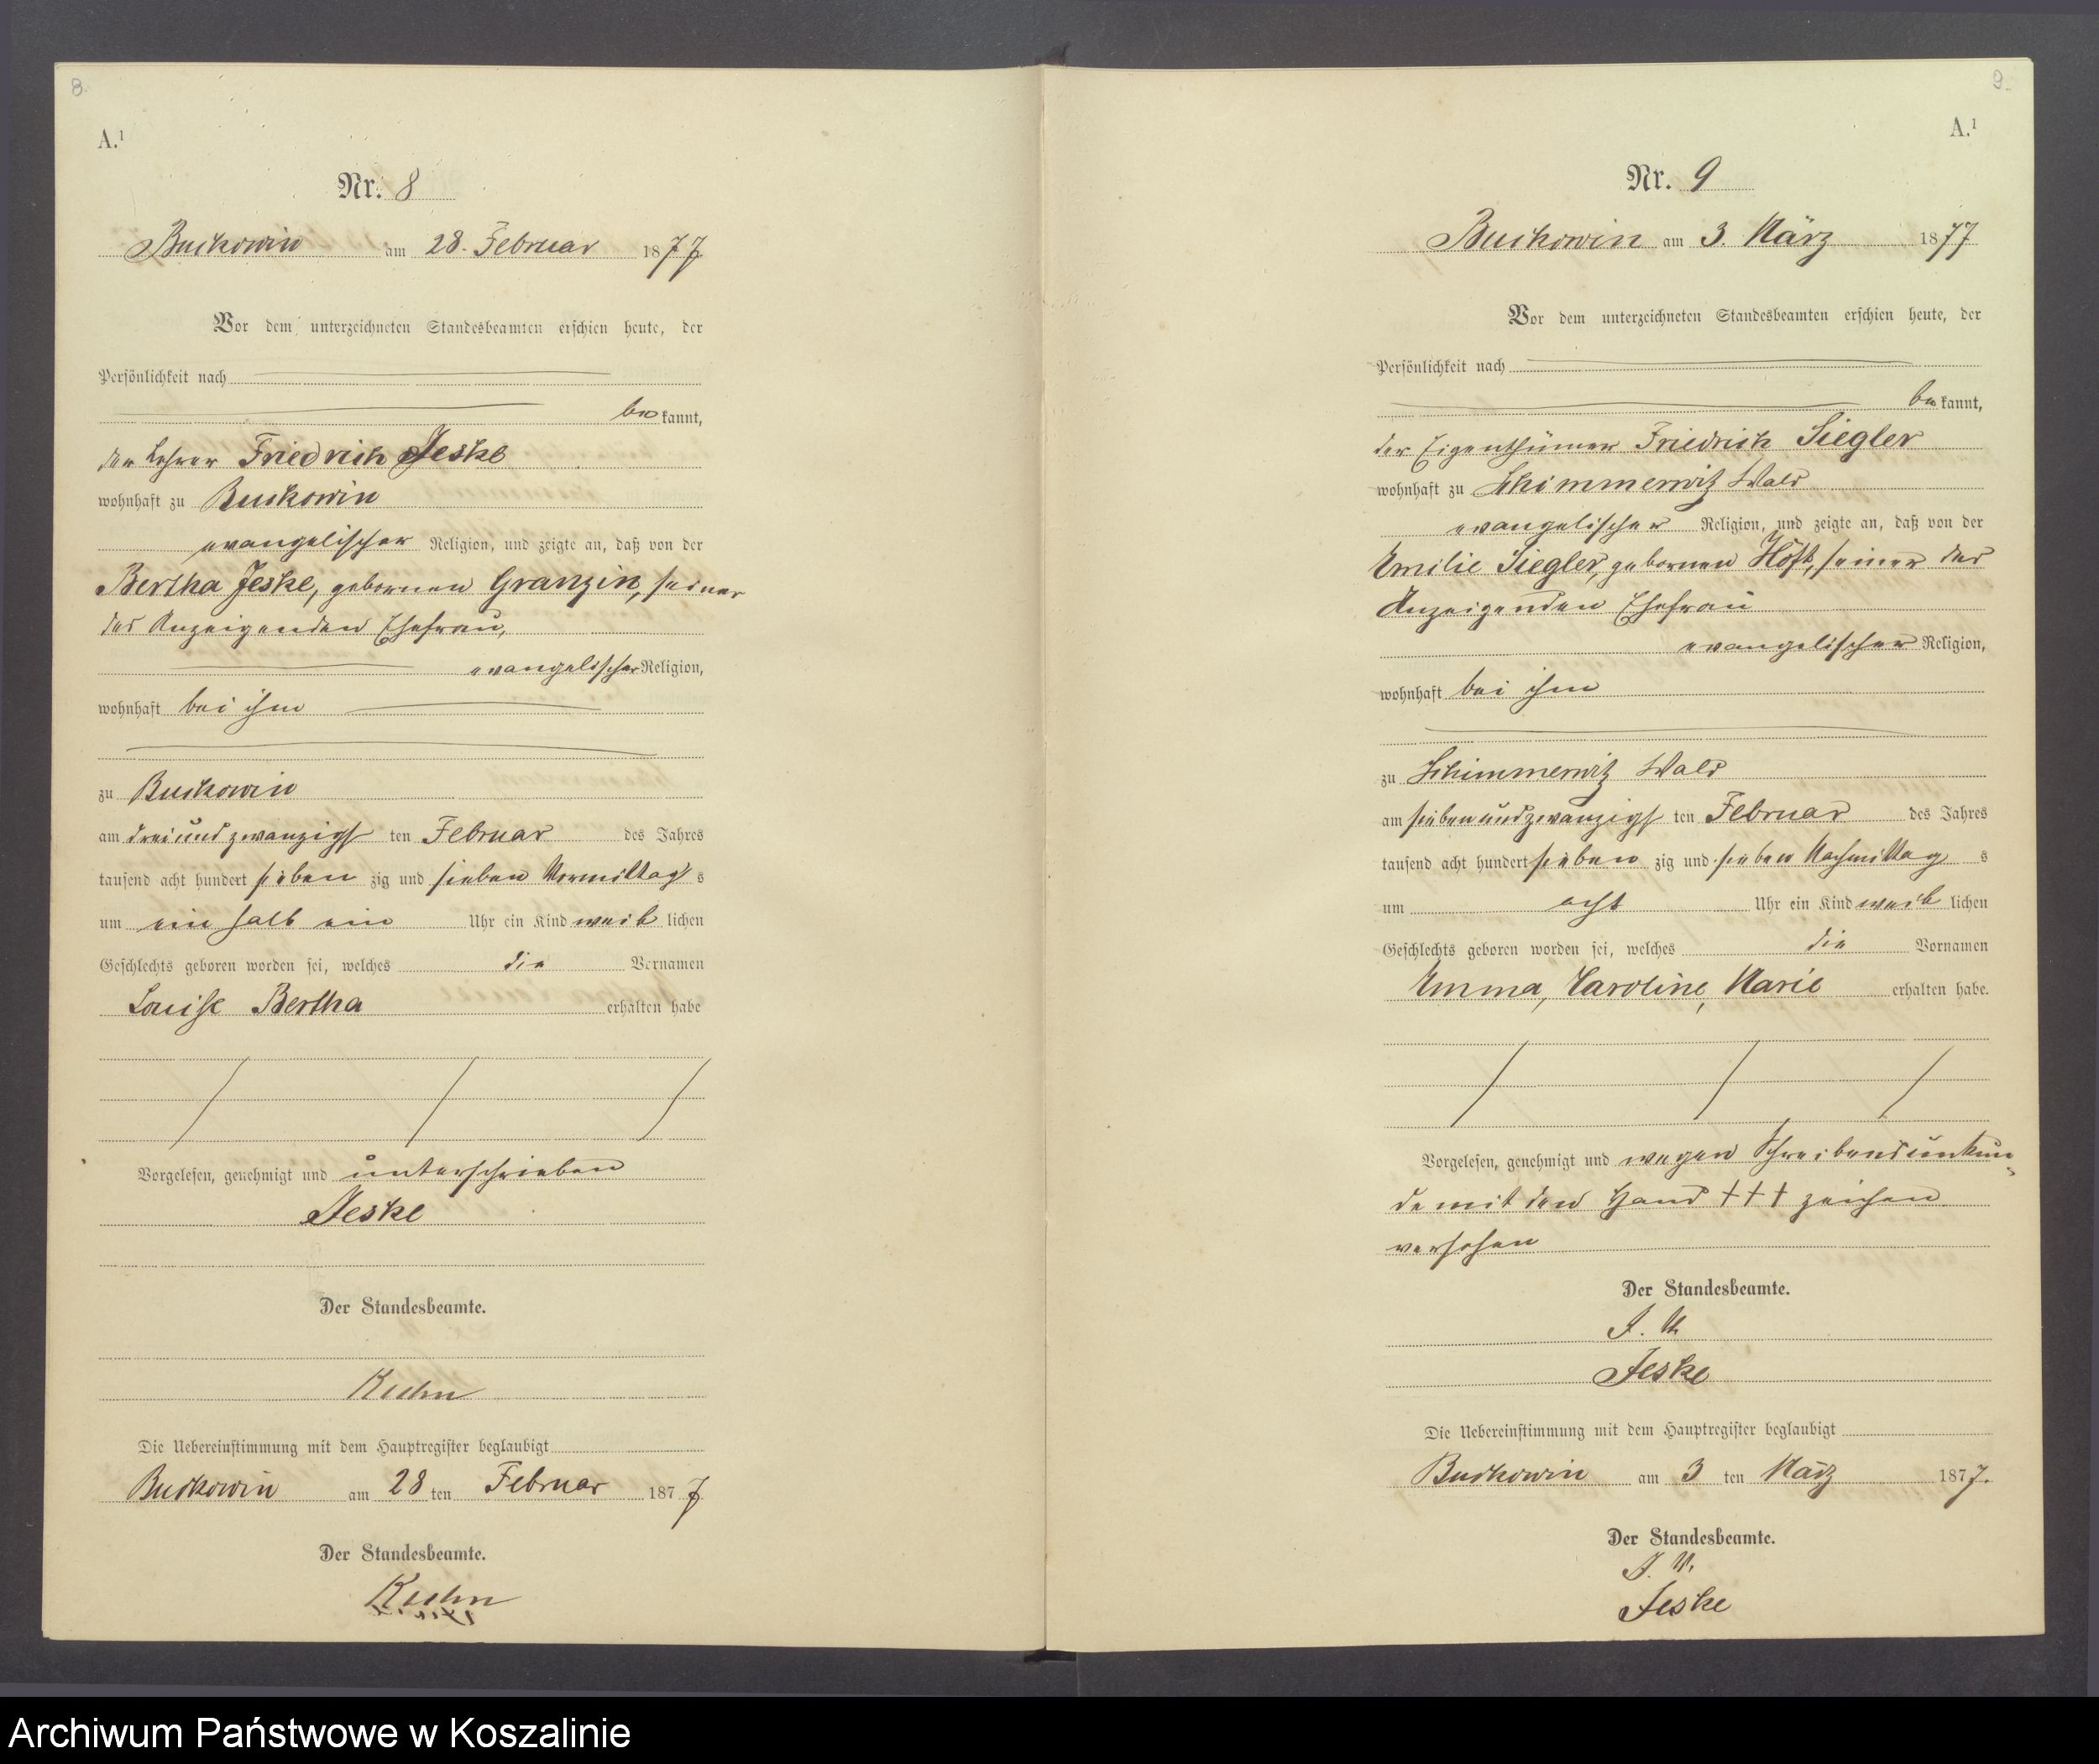 8.
A.¹
Nr. 8
Buckowin am 28. Februar 1877
Vor dem unterzeichneten Standesbeamten erschien heute, der
Persönlichkeit nach
bekannt,
der Lehrer Friedrich Jeske
wohnhaft zu Buckowin
evangelischer Religion, und zeigte an, daß von der
Bertha Jeske, gebornen Granzin, seiner
des Anzeigenden Ehefrau,
evangelischer Religion,
wohnhaft bei ihm
zu Buckowin
am dreiundzwanzigsten Februar des Jahres
tausend acht hundert siebenzig und sieben Vormittags
um ein halb ein Uhr ein Kind weiblichen
Geschlechts geboren worden sei, welches die Vornamen
Louise Bertha erhalten habe
Vorgelesen, genehmigt und unterschrieben
Jeske
Der Standesbeamte.
Kuhn
Die Uebereinstimmung mit dem Hauptregister beglaubigt
Buckowin am 28ten Februar 1877
Der Standesbeamte.
Kuhn
9.
A.¹
Nr. 9
Buckowin am 3. März 1877
Vor dem unterzeichneten Standesbeamten erschien heute, der
Persönlichkeit nach
bekannt,
der Eigenthümer Friedrich Siegler
wohnhaft zu Schimmerwitz Wald
evangelischer Religion, und zeigte an, daß von der
Emilie Siegler, gebornen Höft, seiner des
Anzeigenden Ehefrau
evangelischer Religion,
wohnhaft bei ihm
zu Schimmerwitz Wald
am siebenundzwanzigsten Februar des Jahres
tausend acht hundert siebenzig und sieben Nachmittags
um acht Uhr ein Kind weiblichen
Geschlechts geboren worden sei, welches die Vornamen
Emma, Caroline, Marie erhalten habe.
Vorgelesen, genehmigt und wegen Schreibensunkun-
de mit den Hand ††† zeichen
versehen
Der Standesbeamte.
J. V.
Jeske
Die Uebereinstimmung mit dem Hauptregister beglaubigt
Buckowin am 3 ten März 1877.
Der Standesbeamte.
J. V.
Jeske
Archiwum Państwowe w Koszalinie